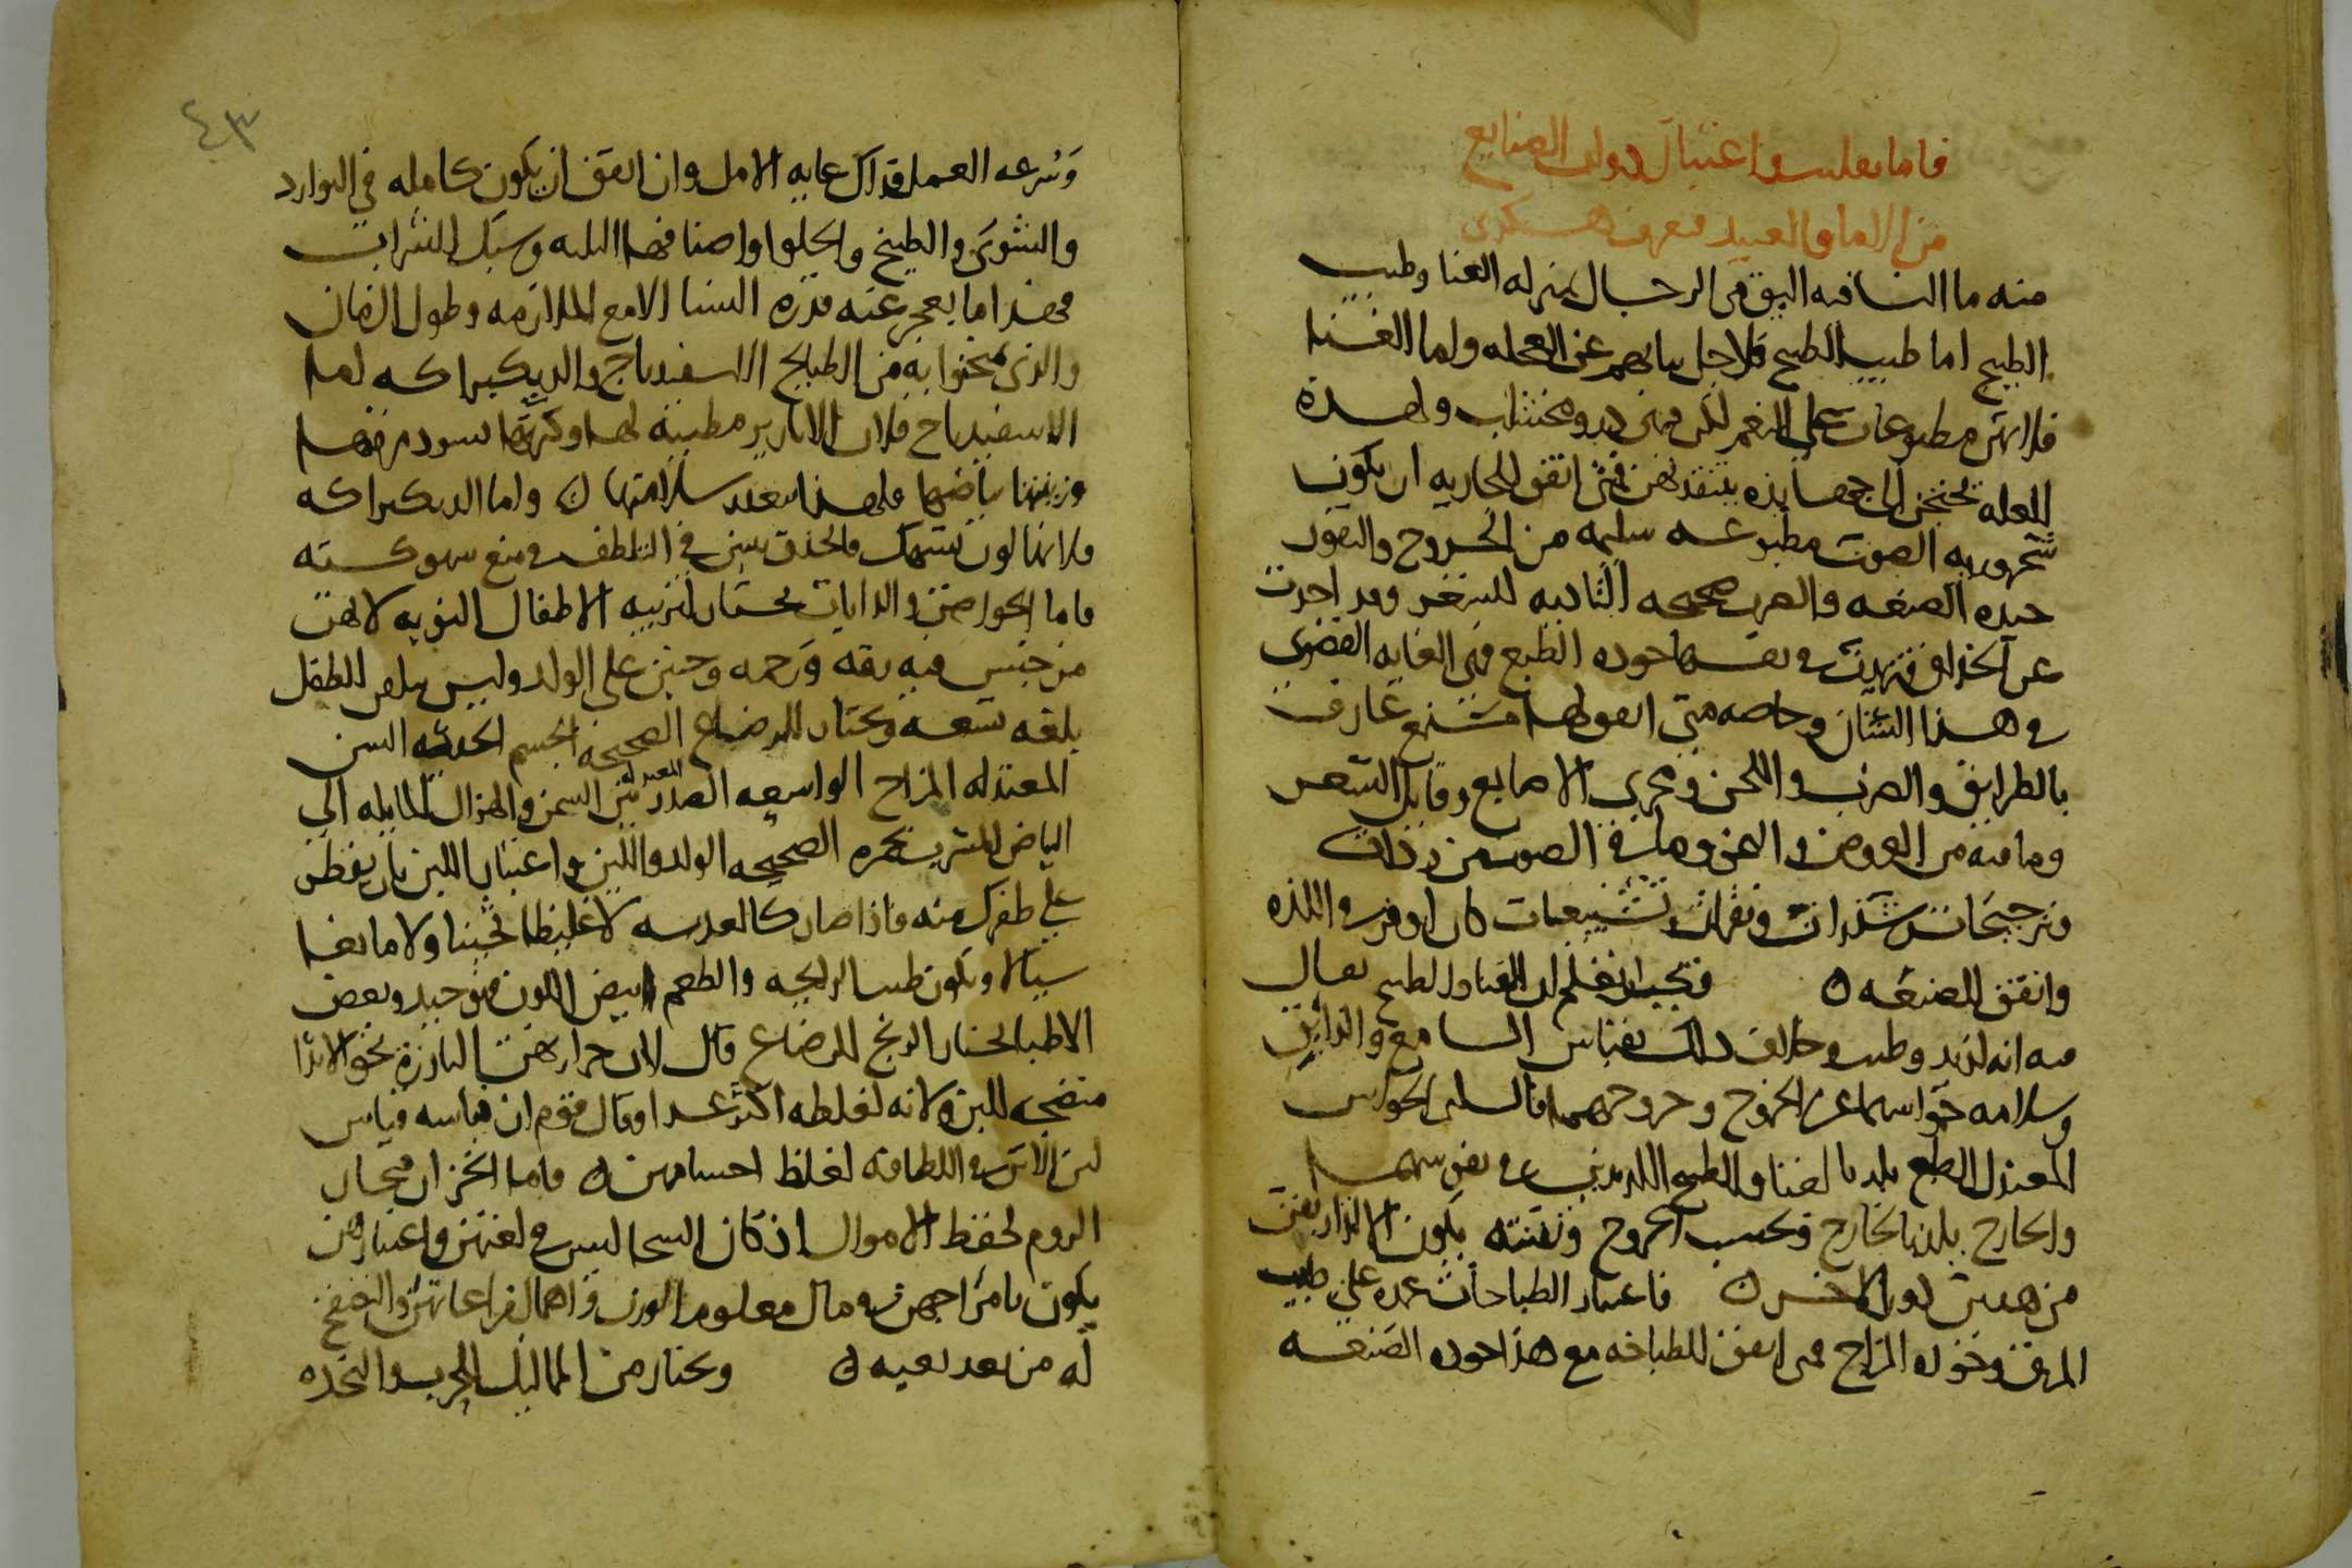 فاما تقليب واعتبار ذوات الصنايع
من الاما والعبيد فهو هكذى
منه ما النسا فيه اليق من الرجال بمنزله الغنا وطيب
الطبيخ اما طيب الطبيخ فلاجل عن العجله واما الغنا
فلانهن مطبوعات على النغم لكن فهن ولهذه
العله تحتجن الى جهابذه ينتقدهن فمتى اتفق للجاريه ان يكون
الصوت مطبوعه سليمه من الخروج والنفور
جيده الصنعه والضرب صحيحه التاديه للشعر وقد اخذت
عن الحذاق في نفسها جوده الطبع فهى الغايه القصوى
فى هذا الشان وخاصه متى اتفق لها مستمع عارف
بالطرايق والضرب واللحن ومجرى الاصابع وقايل الشعر
وما فيه من العروض والمعنى وما فى الصوت من
وترجيحات وشذرات ونقرات كان اوفر فى اللذه
واتقن للصنعه ٥ فيجب ان نعلم ان الغنا والطبيخ يقال
فيه انه لذيذ وطيب وخلاف ذلك بقياس السامع والذايق
وسلامه حواسهما عن الخروج وخروجهما فالسليم الحواس
المعتدل الطبع يلذ بالغنا والطبيخ اللذيذين فى نفوسهما
والخارج يلذ بالخارج وبحسب الخروج يكون الالذاذ
من هذين دون الاخر ٥ فاعتبار الطباخات عمده على طيب
المرق وجوده المزاج فمتى اتفق للطباخه مع هذا جوده الصنعه
٤٣
وسرعه العمل فذاك غايه الامل وان اتفق ان يكون كامله فى البوارد
والشوى والطبيخ والحلوا واصنافها الثلثه وسبك الشراب
فهذا ما يعجز عنه قدره النسا الا مع الملازمه وطول الزمان
والذى يمتحنوا به من الطبايخ الاسفيدباج والديكبراكه اما
الاسفيدباج فلان الابازير مطيبه لها وكثرتها تسود مرقها
وزينتها بياضها فلهذا يتعذر سلامتها ٥ واما الديكبراكه
فلانها لون يسهك والحذق يبين فى التلطف فى منع سهوكته
فاما الحواضن والدايات يختار لتربيه الاطفال النوبه لانهن
من جنس فيه رقه ورحمه وحنين على الولد وليس يلقن الطفل
بلغه تسعه ويختار للرضاع الصحيحه الجسم الحدثه السن
المعتدله المزاج الواسعه الصدر المعتدله بين السمن والهزال المايله الى
البياض المشرب بحمره الصحيحه الولد واللبن واعتبار اللبن بان يقطر
على ظفرك منه فاذا صار كالعدسه لا غليظا ثخينا ولا مايعا
سيالا ويكون طيب الرايحه والطعم ابيض اللون فهو جيد وبعض
الاطبا يختار الزنج للرضاع قال لان حرارهن البارزه نحو الاثدا
منضجه للبن ولانه لغلظه اكثر غدا وقال قوم ان قياسه قياس
لبن الاتن فى اللطافه لغلظ اجسامهن ٥ فاما الخزان فيختار
الروم لحفظ الاموال اذ كان السخا ليس فى لغتهن واعتبارهن
يكون بامزاجهن فى مال معلوم الوزن واهمال مراعاتهن والتصفح
له من بعد تعبيه ٥ ويختار من المماليك للحرب والنجده